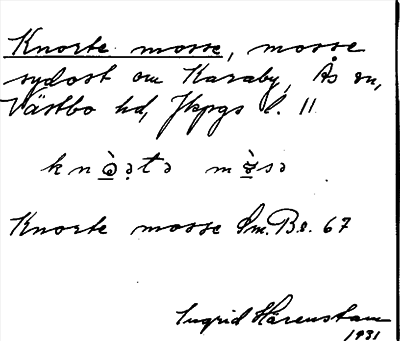 Knorte mosse, mosse
sydost om Karaby, Ås sn,
Västbo hd, Jkpgs l. 11
knò̱ətə mò̱sə
Knorte mosse Sm.Be. 67
Ingrid Hårenstam
1931